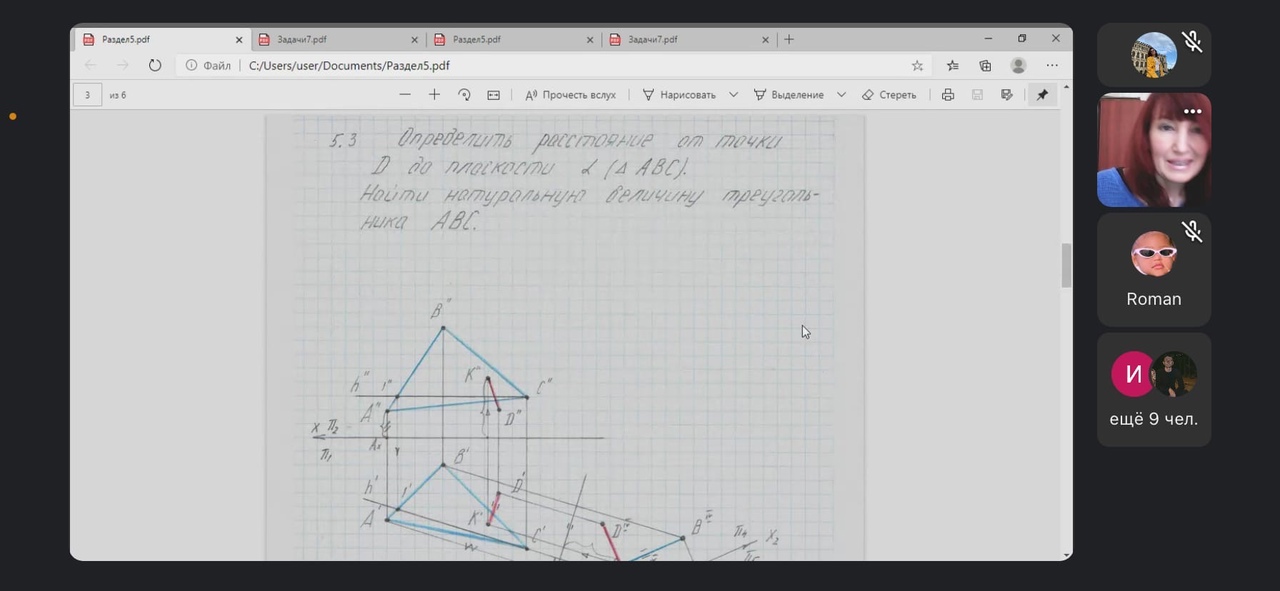 Раздел5.pdf
Задачи7.pdf
Раздел5.pdf
Задачи7.pdf
Файл
C:/Users/user/Documents/Раздел5.pdf
3
из 6
Прочесть вслух
Нарисовать
Выделение
Стереть
5.3 Определить расстояние от точки
D до плоскости α (Δ ABC).
Найти натуральную величину треуголь-
ника ABC.
B"
h" 1" K" C"
A" D"
x π₂
Ax
π₁
B'
h' 1' D'
A' K' C'
D^IV B^IV π₄ x₂
Roman
И
ещё 9 чел.